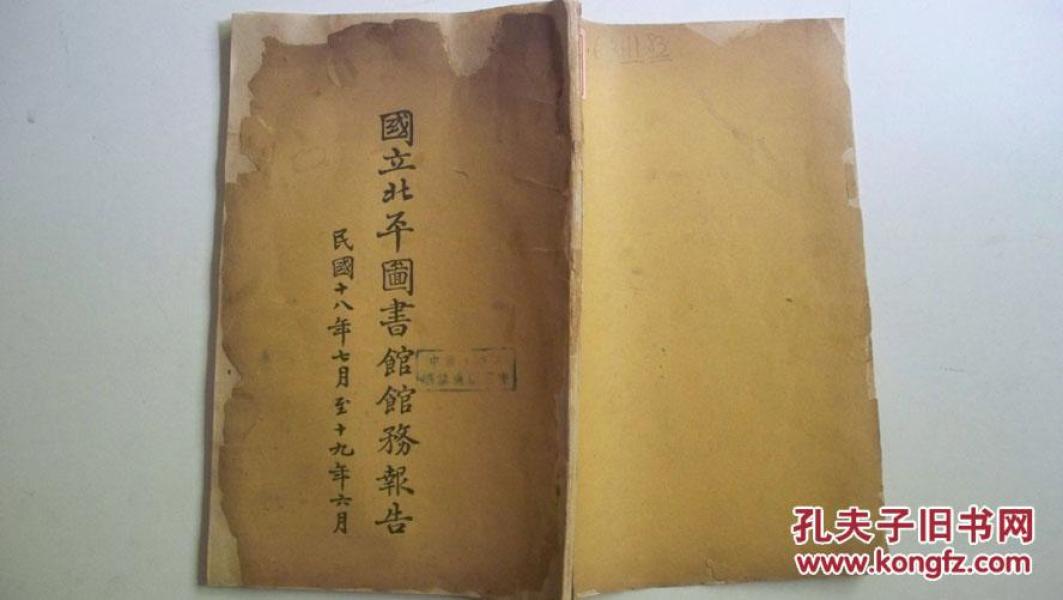 國立北平圖書館館務報告
民國十八年七月至十九年六月
孔夫子旧书网
www.kongfz.com